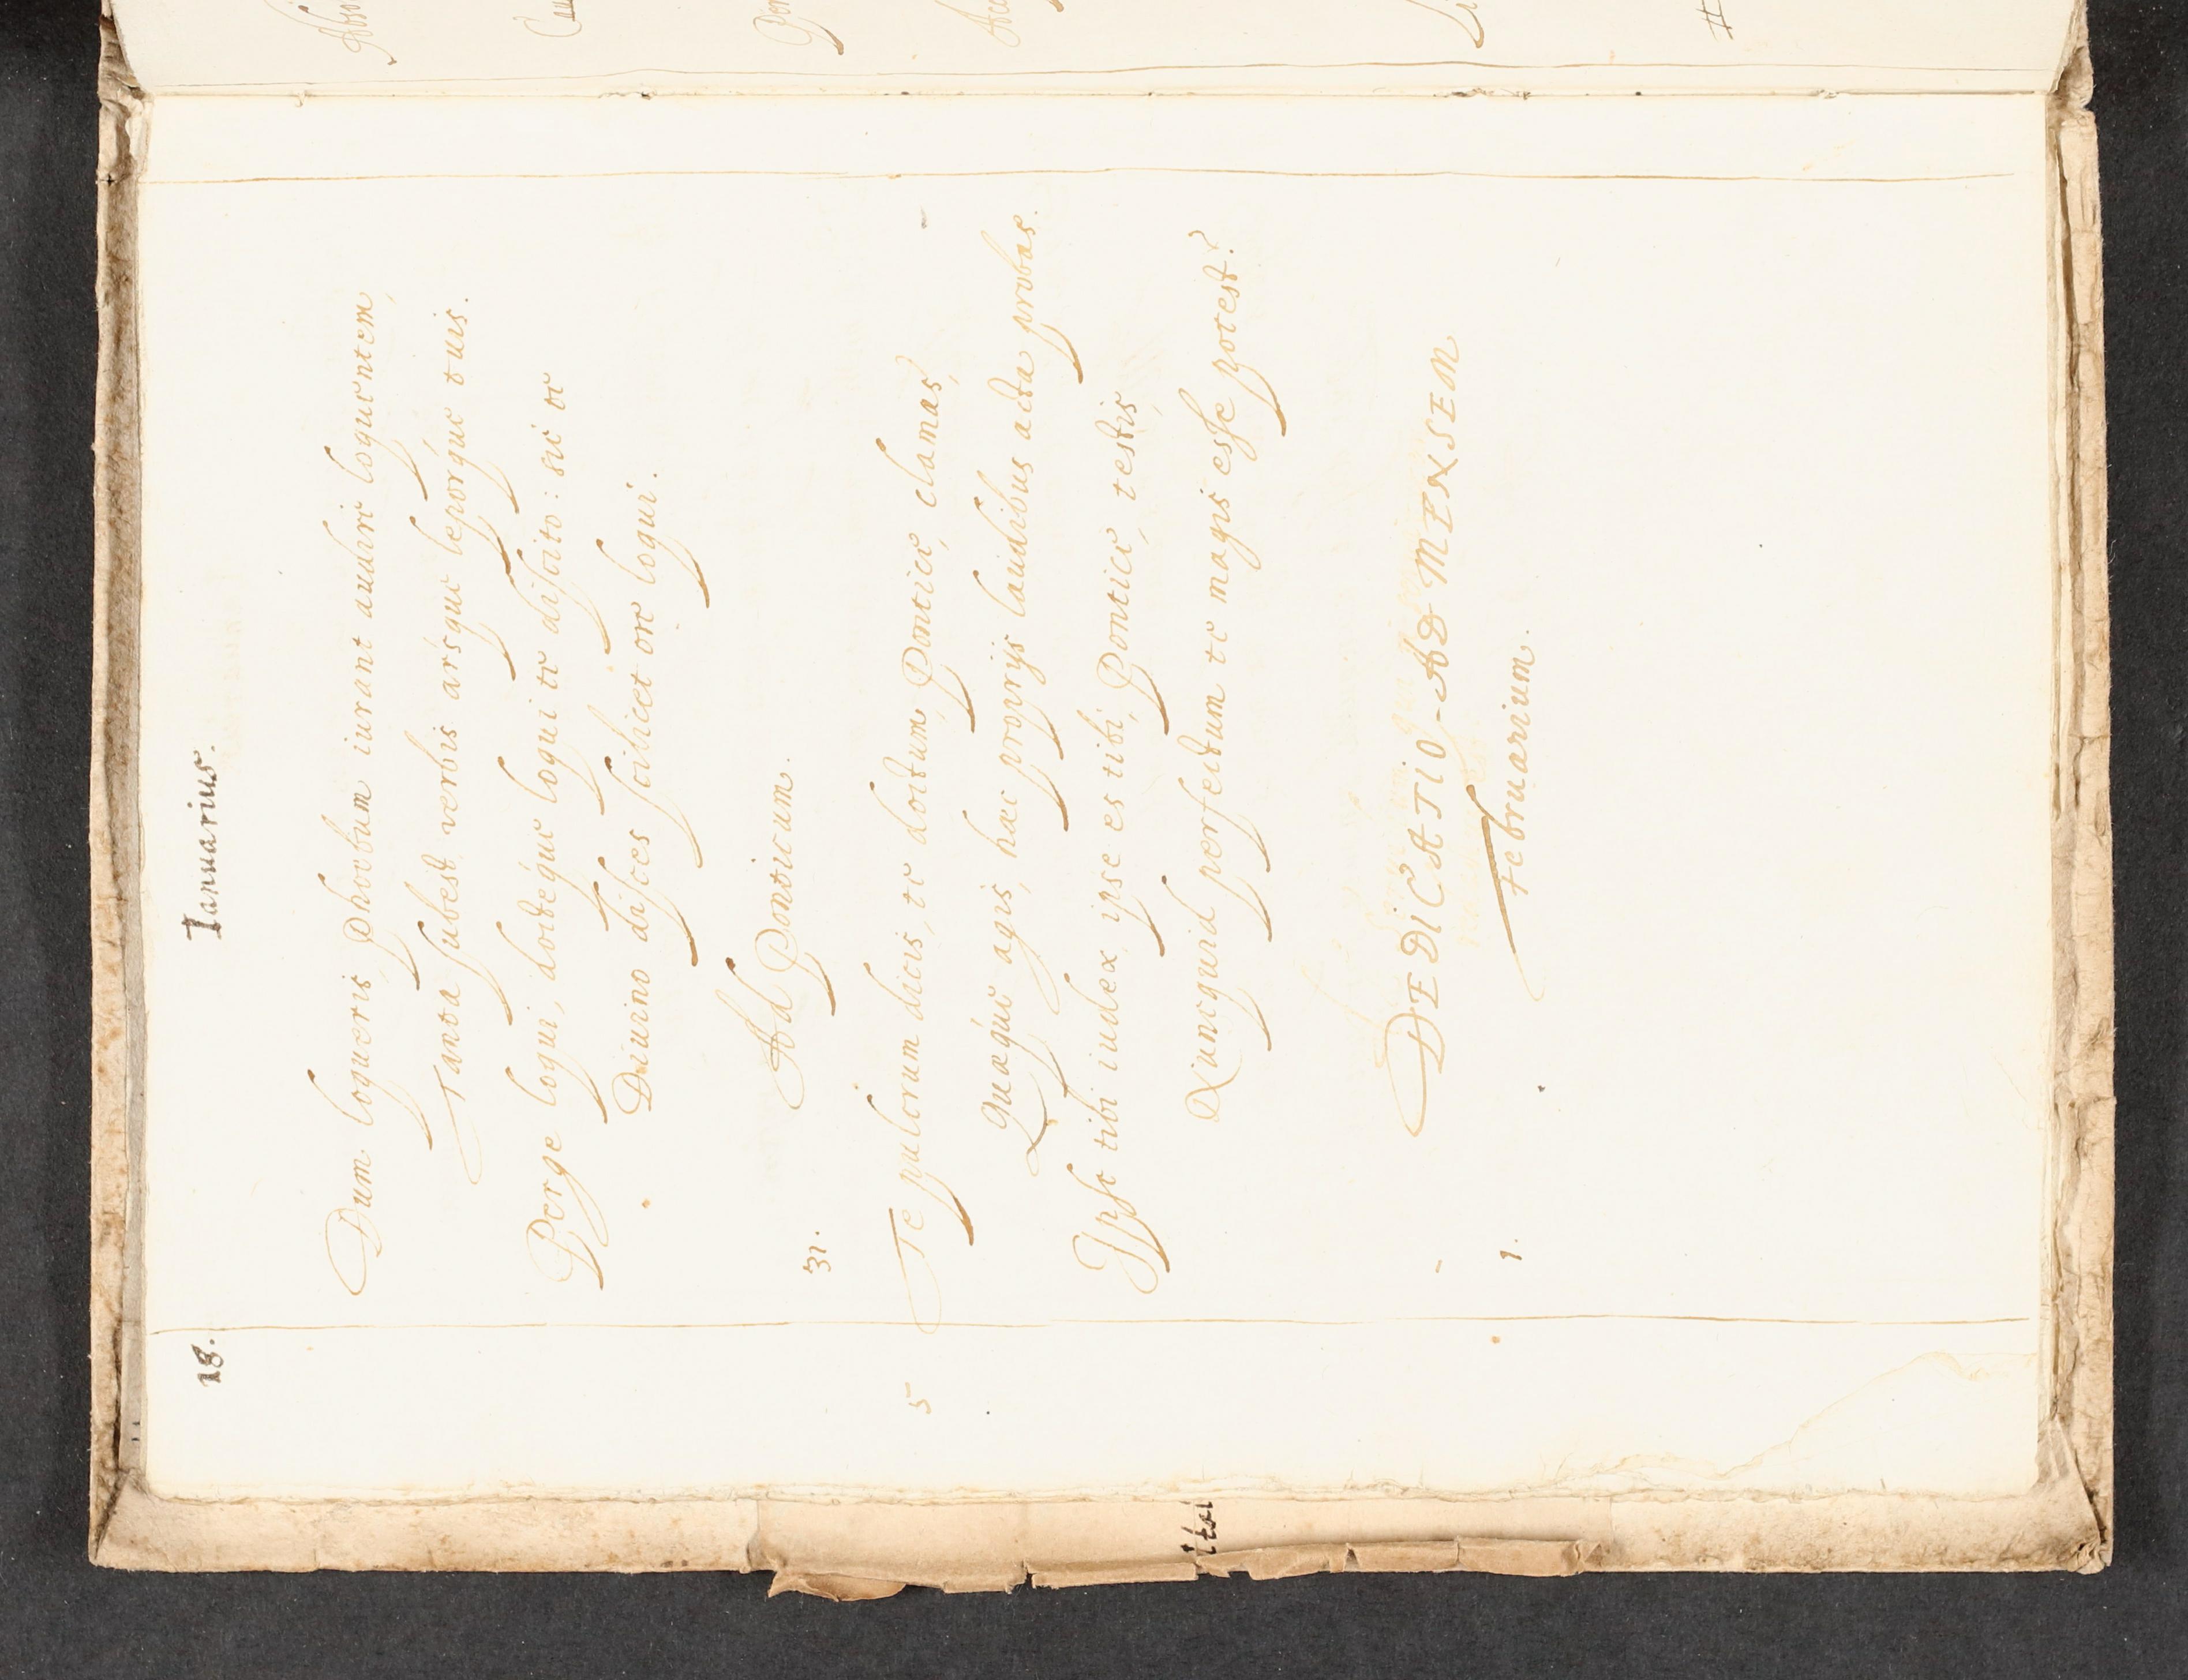 18. Ianuarius.
Dum loqueris, Phoebum iurant audire loquentem,
Tanta subest verbis arsque leporque tuis.
Perge loqui, doctéque loqui te discito: sic et
Diuino disces scilicet ore loqui.
31. Ad Ponticum.
5 Te pulcrum dicis, te doctum, Pontice, clamas,
Quaeque agis, haec proprijs laudibus acta probas.
Ipse tibi iudex, ipse es tibi, Pontice, testis,
Nunquid perfectum te magis esse potest?
DEDICATIO AD MENSEM
1. Februarium.